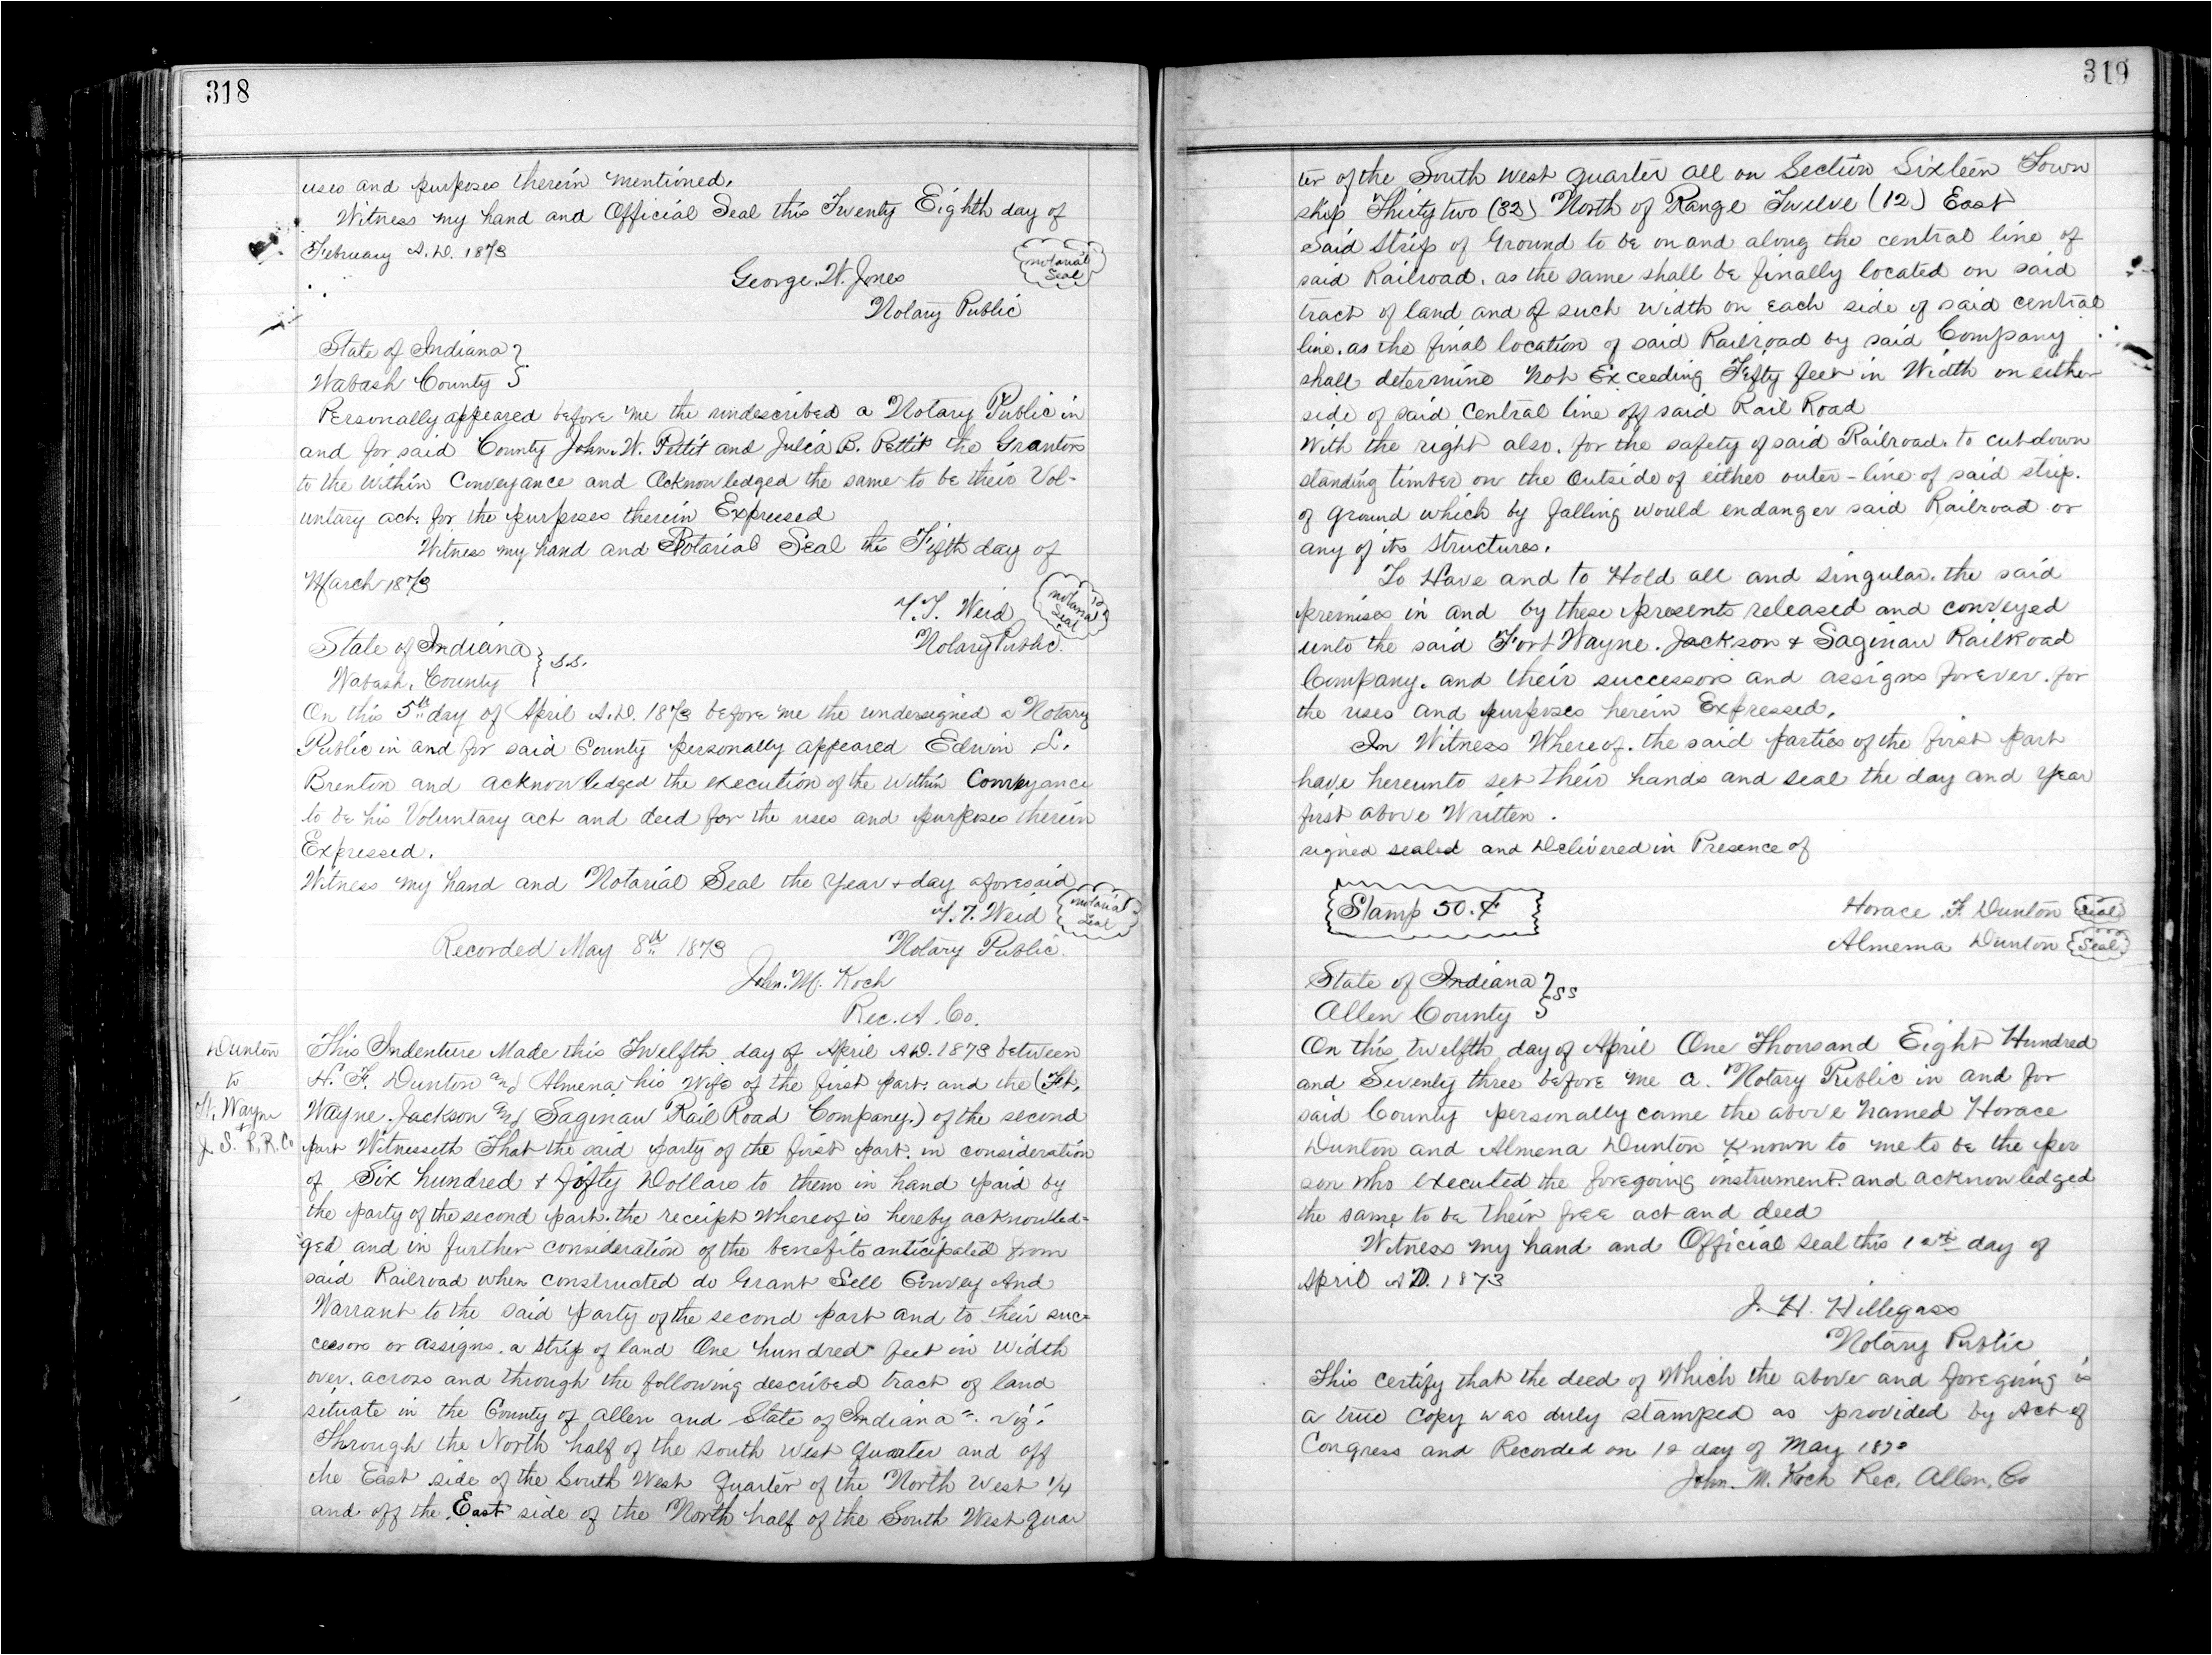 318
uses and purposes therein mentioned.
Witness my hand and Official Seal this Twenty Eighth day of
February A.D. 1873
Notarial Seal
George. W. Jones
Notary Public
State of Indiana
Wabash County
Personally appeared before me the undescribed a Notary Public in
and for said County John. W. Pettit and Julia B. Pettit the Grantors
to the within Conveyance and acknowledged the same to be their Vol-
untary act. for the purposes therein Expressed
Witness my hand and Notarial Seal this Fifth day of
March 1873
Notarial Seal
T. Weid
Notary Public.
State of Indiana } S.S.
Wabash. County
On this 5th day of April A.D. 1873 before me the undersigned a Notary
Public in and for said County personally appeared Edwin L.
Brenton and acknowledged the execution of the within Conveyance
to be his Voluntary act and deed for the uses and purposes therein
Expressed.
Witness my hand and Notarial Seal the Year & day aforesaid
Notarial Seal
T. Weid
Recorded May 8th 1873 Notary Public.
John. M. Koch
Rec. A. Co.
Dunton
to
Ft. Wayne
J & S. R.R. Co
This Indenture Made this Twelfth day of April A.D. 1873 between
H. F. Dunton and Almena his Wife of the first part. and the (Ft.
Wayne. Jackson and Saginaw Rail Road Company.) of the second
part Witnesseth That the said party of the first part. in consideration
of Six hundred & fifty Dollars to them in hand paid by
the party of the second part. the receipt whereof is hereby acknowled=
ged and in further consideration of the benefits anticipated from
said Railroad when constructed do Grant Sell Convey And
Warrant to the said party of the second part and to their suc=
cessors or assigns. a strip of land One hundred feet in width
over. across and through the following described tract of land
situate in the County of Allen and State of Indiana". viz".
Through the North half of the south west quarter and off
the East side of the South West quarter of the North West 1/4
and off the East side of the North half of the South West quar
319
ter of the South west quarter all on Section Sixteen Town
ship Thirty two (32) North of Range Twelve (12) East
Said strip of Ground to be on and along the central line of
said Railroad. as the same shall be finally located on said
tract of land and of such width on each side of said central
line. as the final location of said Railroad by said Company
shall determine not Exceeding Fifty feet in Width on either
side of said Central line off said Rail Road
With the right also. for the safety of said Railroad. to cut down
standing timber on the outside of either outer-line of said strip.
of ground which by falling would endanger said Railroad or
any of its structures.
To Have and to Hold all and singular. the said
premises in and by these presents released and conveyed
unto the said Fort Wayne. Jackson & Saginaw RailRoad
Company. and their successors and assigns forever. for
the uses and purposes herein Expressed.
In Witness Whereof. the said parties of the first part
have hereunto set their hands and seal the day and year
first above Written.
signed sealed and Delivered in Presence of
Stamp 50.¢
Horace. F. Dunton Seal
Almema Dunton Seal
State of Indiana } SS
Allen County
On this twelfth day of April One Thousand Eight Hundred
and Seventy three before me a. Notary Public in and for
said County personally came the above named Horace
Dunton and Almena Dunton Known to me to be the per
son who executed the foregoing instrument. and acknowledged
the same to be their free act and deed
Witness my hand and Official seal this 12th day of
April A.D. 1873
J. H. Hillegass
Notary Public
This certify that the deed of which the above and foregoing is
a true copy was duly stamped as provided by Act of
Congress and Recorded on 12 day of May 1873
John. M. Koch Rec. Allen. Co